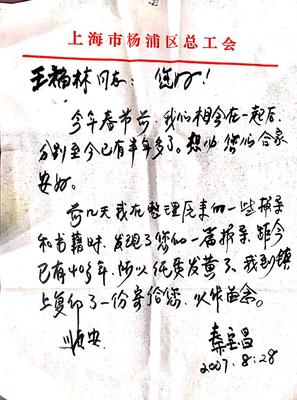 上海市杨浦区总工会
王福林同志：您好！
今年春节前，我们相会在一起后，
分别至今已有半年多了。想必您们合家
安好。
前几天我在整理历来的一些报杂
和书籍时，发现了您的一篇报杂，距今
已有40多年，所以纸质发黄了，我到镇
上复印了一份寄给您，以作留念。
顺安
秦宝昌
2007.8.28